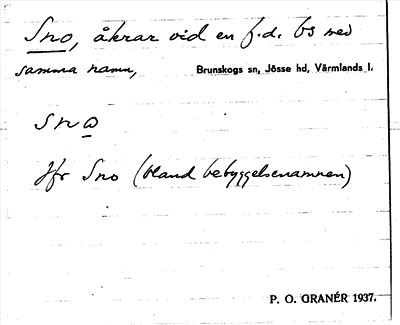 Sno, åkrar vid en f.d. bs med
samma namn, Brunskogs sn, Jösse hd, Värmlands l.
snω
Jfr Sno (bland bebyggelsenamnen)
P. O. GRANÉR 1937.